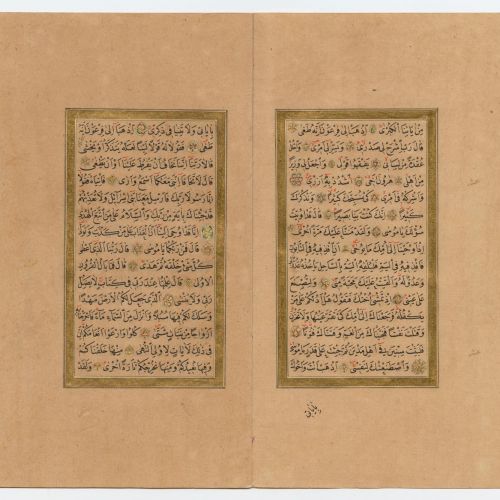 مِنْ اٰيَاتِنَا الْكُبْرٰى اِذْهَبْ اِلٰى فِرْعَوْنَ اِنَّهُ طَغٰى
قَالَ رَبِّ اشْرَحْ لِى صَدْرِى وَيَسِّرْ لِى اَمْرِى وَاحْلُلْ
عُقْدَةً مِنْ لِسَانِى يَفْقَهُوا قَوْلِى وَاجْعَلْ لِى وَزِيرًا
مِنْ اَهْلِى هٰرُونَ اَخِى اُشْدُدْ بِهٖ اَزْرِى
وَاَشْرِكْهُ فِى اَمْرِى كَىْ نُسَبِّحَكَ كَثِيرًا وَنَذْكُرَكَ
كَثِيرًا اِنَّكَ كُنْتَ بِنَا بَصِيرًا قَالَ قَدْ اُوتِيتَ
سُؤْلَكَ يَا مُوسٰى وَلَقَدْ مَنَنَّا عَلَيْكَ مَرَّةً اُخْرٰى
اِذْ اَوْحَيْنَا اِلٰى اُمِّكَ مَا يُوحٰى اَنِ اقْذِفِيهِ فِى التَّابُوتِ
فَاقْذِفِيهِ فِى الْيَمِّ فَلْيُلْقِهِ الْيَمُّ بِالسَّاحِلِ يَاْخُذْهُ عَدُوٌّ لِى
وَعَدُوٌّ لَهُ وَاَلْقَيْتُ عَلَيْكَ مَحَبَّةً مِنِّى وَلِتُصْنَعَ
عَلٰى عَيْنِى اِذْ تَمْشِى اُخْتُكَ فَتَقُولُ هَلْ اَدُلُّكُمْ عَلٰى مَنْ
يَكْفُلُهُ فَرَجَعْنَاكَ اِلٰى اُمِّكَ كَىْ تَقَرَّ عَيْنُهَا وَلَا تَحْزَنَ
وَقَتَلْتَ نَفْسًا فَنَجَّيْنَاكَ مِنَ الْغَمِّ وَفَتَنَّاكَ فُتُونًا
فَلَبِثْتَ سِنِينَ فِى اَهْلِ مَدْيَنَ ثُمَّ جِئْتَ عَلٰى قَدَرٍ يَا مُوسٰى
وَاصْطَنَعْتُكَ لِنَفْسِى اِذْهَبْ اَنْتَ وَاَخُوكَ
بِاٰيَاتِى
بِاٰيَاتِى وَلَا تَنِيَا فِى ذِكْرِى اِذْهَبَا اِلٰى فِرْعَوْنَ اِنَّهُ
طَغٰى فَقُولَا لَهُ قَوْلًا لَيِّنًا لَعَلَّهُ يَتَذَكَّرُ اَوْ يَخْشٰى
قَالَا رَبَّنَا اِنَّنَا نَخَافُ اَنْ يَفْرُطَ عَلَيْنَا اَوْ اَنْ يَطْغٰى
قَالَ لَا تَخَافَا اِنَّنِى مَعَكُمَا اَسْمَعُ وَاَرٰى فَاْتِيَاهُ فَقُولَا
اِنَّا رَسُولَا رَبِّكَ فَاَرْسِلْ مَعَنَا بَنِى اِسْرَائِلَ وَلَا تُعَذِّبْهُمْ
قَدْ جِئْنَاكَ بِاٰيَةٍ مِنْ رَبِّكَ وَالسَّلَامُ عَلٰى مَنِ اتَّبَعَ الْهُدٰى
اِنَّا قَدْ اُوحِىَ اِلَيْنَا اَنَّ الْعَذَابَ عَلٰى مَنْ كَذَّبَ وَتَوَلّٰى
قَالَ فَمَنْ رَبُّكُمَا يَا مُوسٰى قَالَ رَبُّنَا الَّذِى اَعْطٰى
كُلَّ شَىْءٍ خَلْقَهُ ثُمَّ هَدٰى قَالَ فَمَا بَالُ الْقُرُونِ
الْاُولٰى قَالَ عِلْمُهَا عِنْدَ رَبِّى فِى كِتَابٍ لَا يَضِلُّ
رَبِّى وَلَا يَنْسٰى اَلَّذِى جَعَلَ لَكُمُ الْاَرْضَ مَهْدًا
وَسَلَكَ لَكُمْ فِيهَا سُبُلًا وَاَنْزَلَ مِنَ السَّمَاءِ مَاءً فَاَخْرَجْنَا بِهٖ
اَزْوَاجًا مِنْ نَبَاتٍ شَتّٰى كُلُوا وَارْعَوْا اَنْعَامَكُمْ اِنَّ
فِى ذٰلِكَ لَاٰيَاتٍ لِاُولِى النُّهٰى مِنْهَا خَلَقْنَاكُمْ
وَفِيهَا نُعِيدُكُمْ وَمِنْهَا نُخْرِجُكُمْ تَارَةً اُخْرٰى وَلَقَدْ